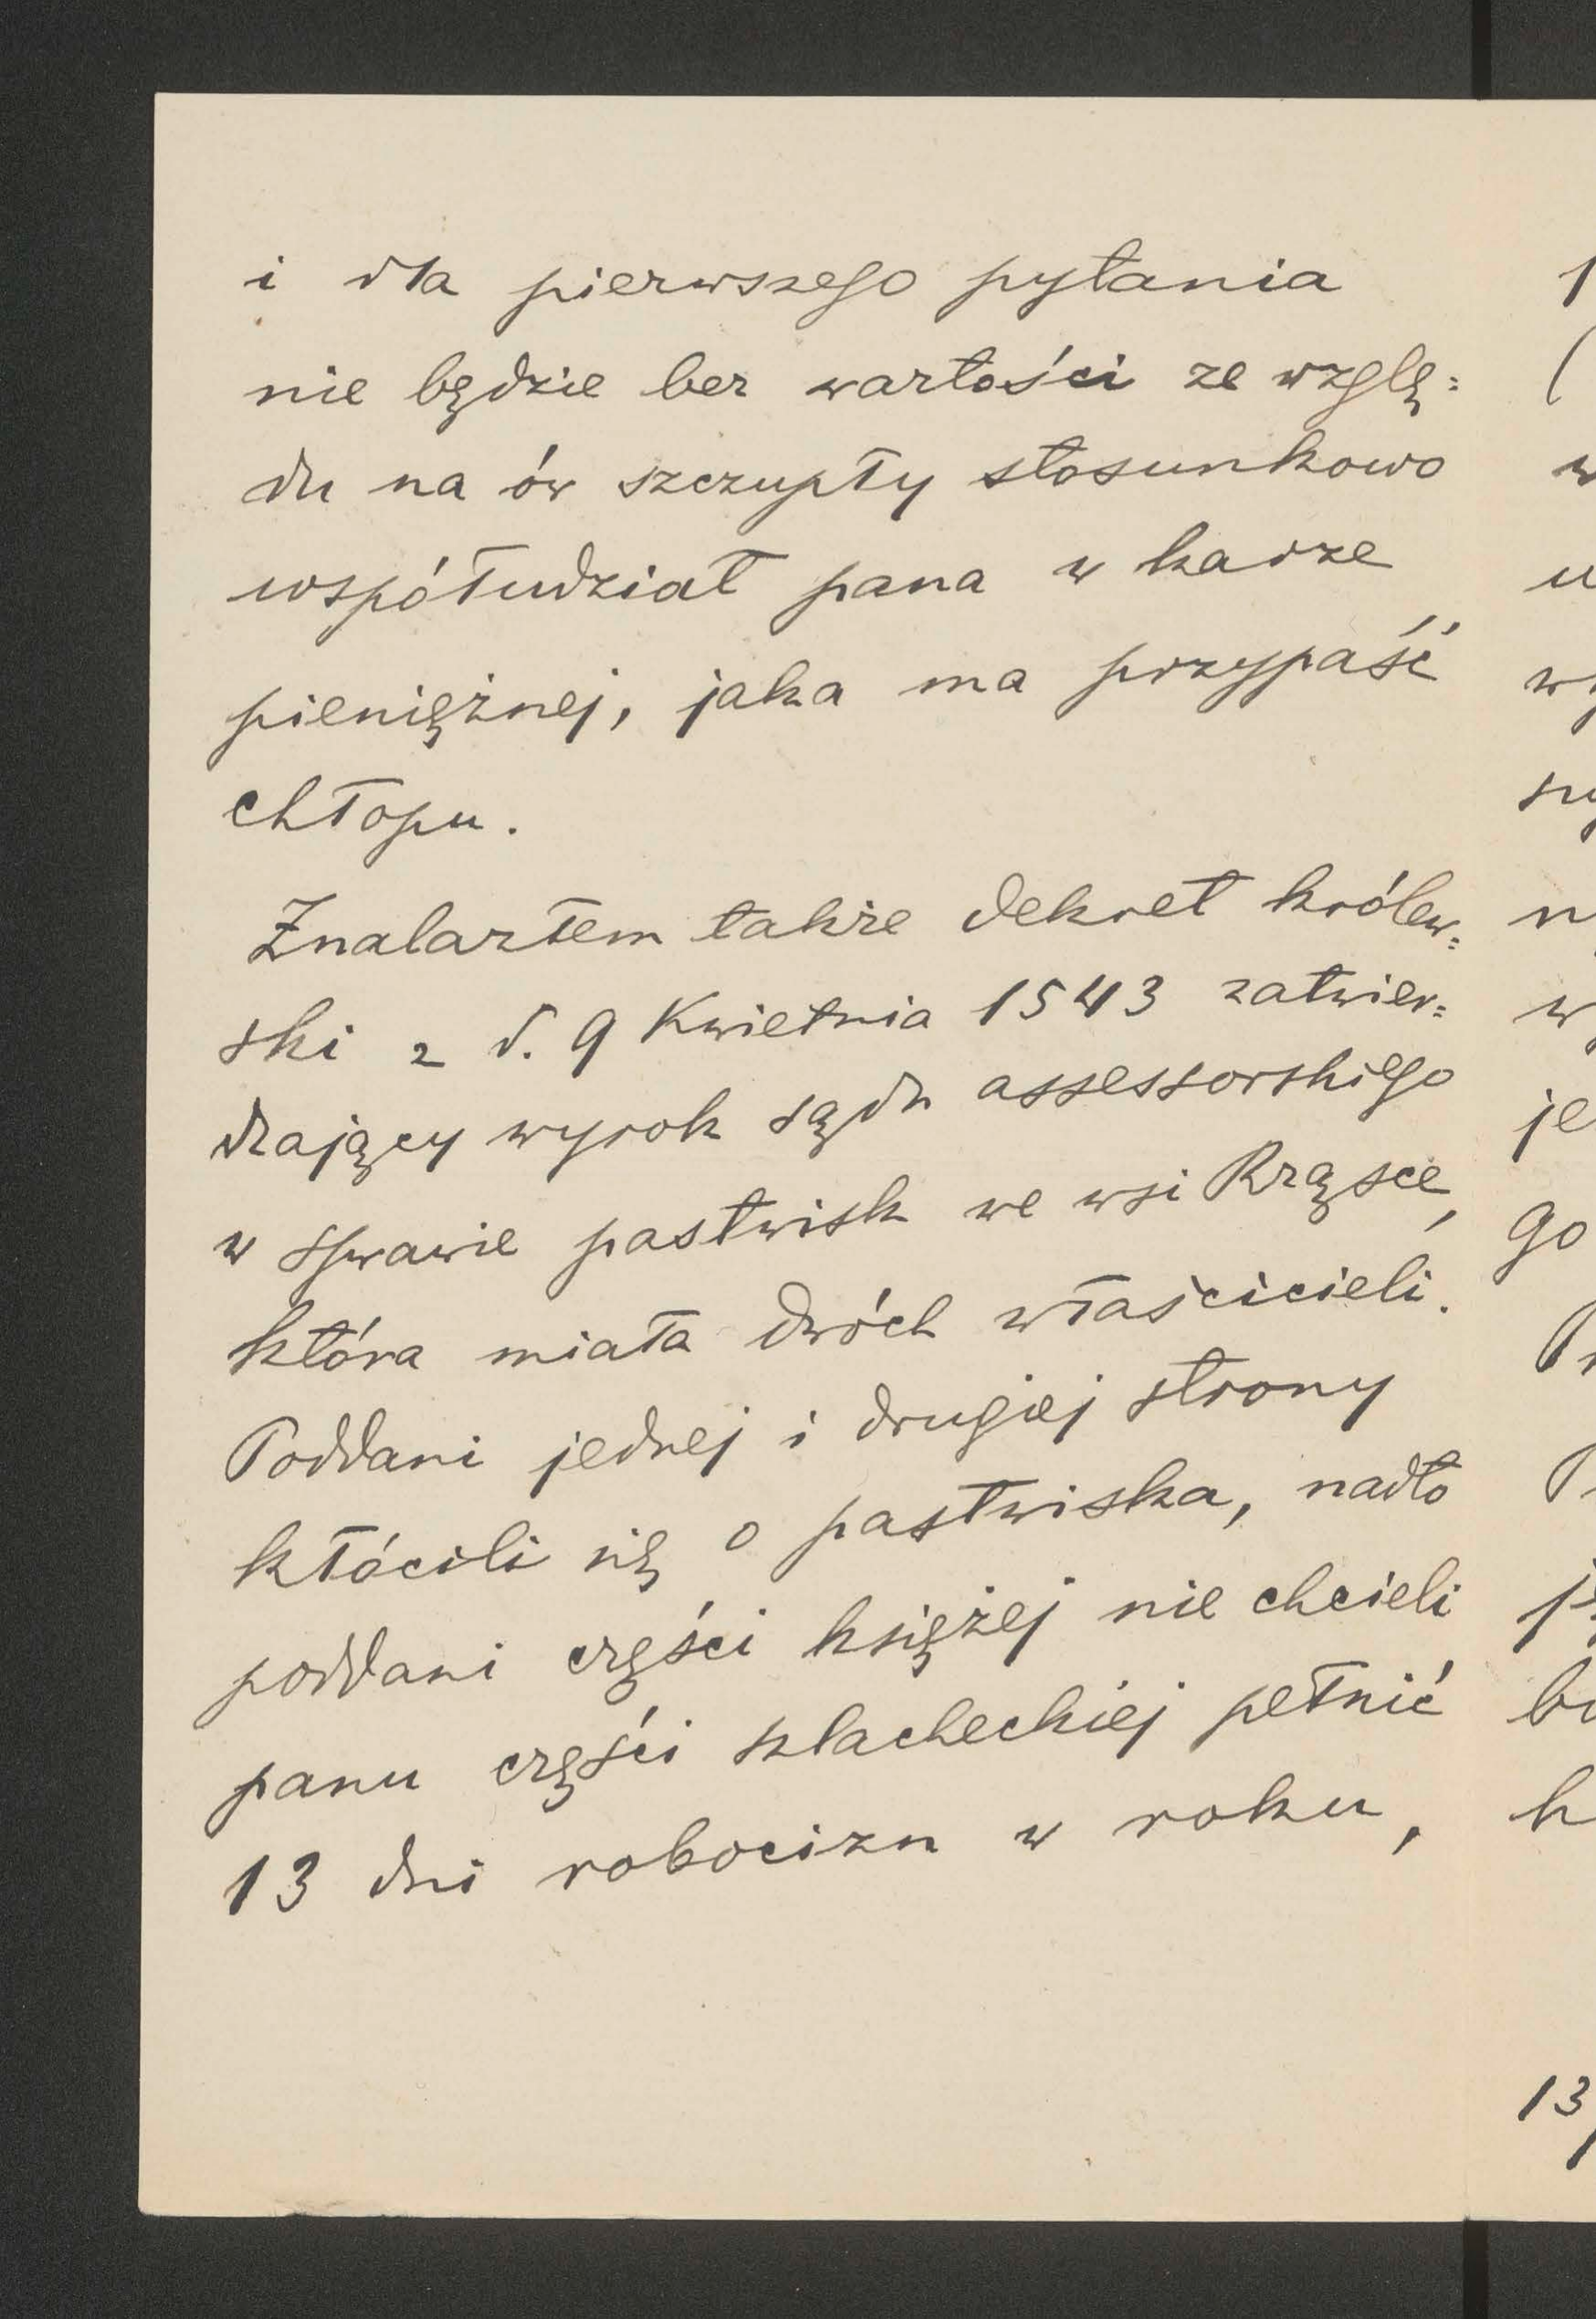 i dla pierwszego pytania
nie będzie bez wartości ze wzglę=
du na ów szczupły stosunkowo
współudział pana w karze
pieniężnej, jaka ma przypaść
chłopu.
Znalazłem także dekret królew=
ski z d. 9 Kwietnia 1543 zatwier=
dzający wyrok sądu assessorskiego
w sprawie pastwisk we wsi Krząsce,
która miała dwóch właścicieli.
Poddani jednej i drugiej strony
kłócili się o pastwiska, nadto
poddani części księżej nie chcieli
panu części szlacheckiej pełnić
13 dni robocizn w roku,